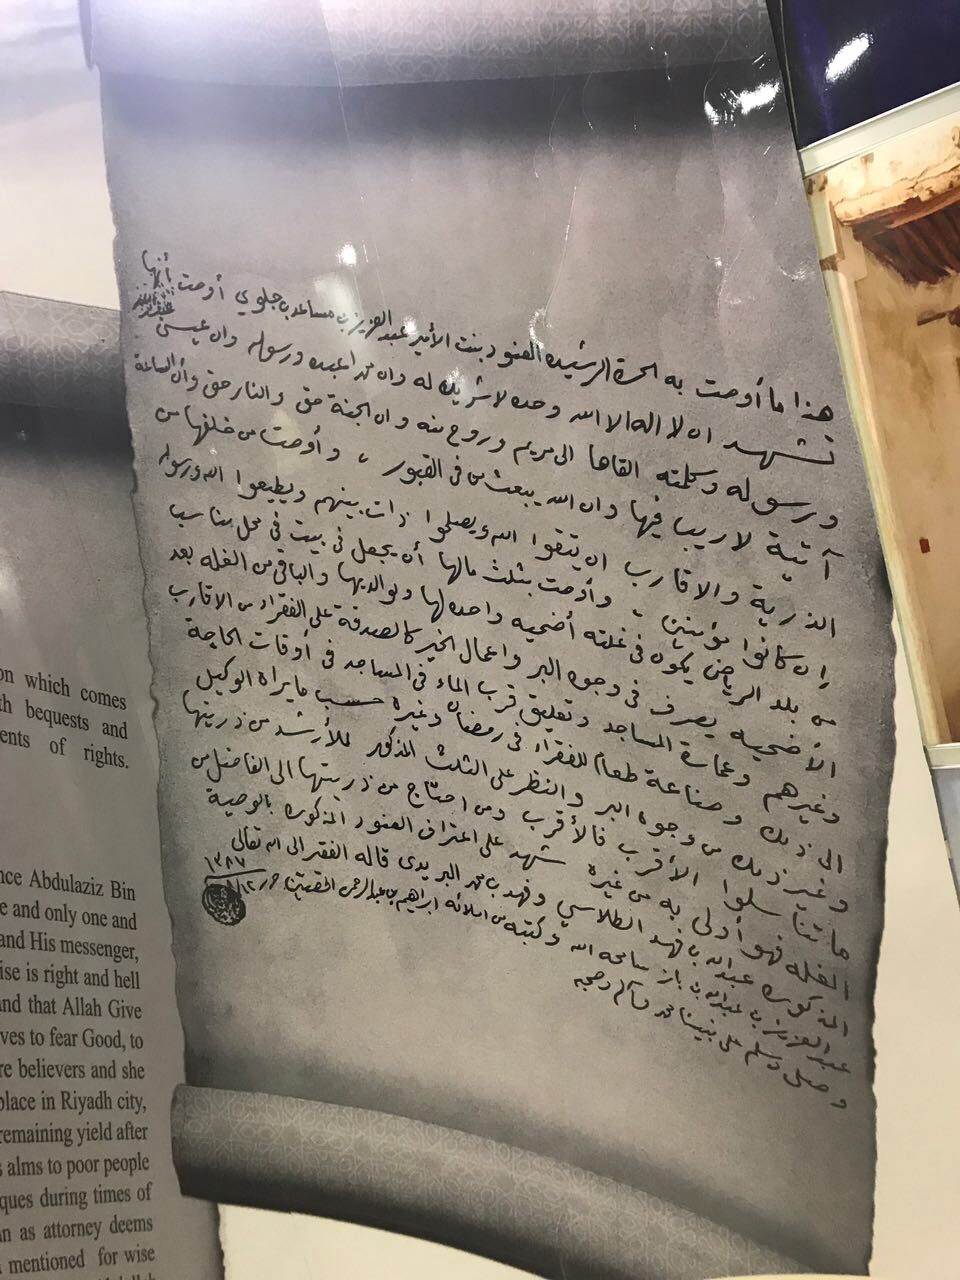 هذا ما أوصت به الحرة الرشيده العنود بنت الأمير عبد العزيز بن مساعد بن جلوي أوصت أنها
تشهد ان لا اله الا الله وحده لا شريك له وان محمدا عبده ورسوله وان عيسى
ورسوله وكلمته القاها الى مريم وروح منه وان الجنة حق والنار حق وأن الساعة
آتية لا ريب فيها وان الله يبعث من في القبور ، وأوصت من خلفها من
الذرية والاقارب ان يتقوا الله ويصلحوا ذات بينهم ويطيعوا الله ورسوله
ان كانوا مؤمنين ، وأوصت بثلث مالها أن يجعل في بيت في محل مناسب
من بلد الرياض يكون في غلته أضحيه واحده لها ولوالديها والباقي من الغله بعد
الأضحيه يصرف في وجوه البر واعمال الخير كالصدقة على الفقراء من الاقارب
وغيرهم وعمارة المساجد وتعليق قرب الماء في المساجد في أوقات الحاجة
الى ذلك وصناعة طعام للفقراء في رمضان وغيره حسب ما يراه الوكيل
وغير ذلك من وجوه البر والنظر على الثلث المذكور للأرشد من ذريتها
ما تناسلوا الأقرب فالأقرب ومن احتاج من ذريتها الى الفاضل من
الغله فهو أولى به من غيره شهد على اعتراف العنود المذكوره بالوصية
المذكوره عبد الله بن فهد الطلاسي وفهد بن محمد البريدي قاله الفقير الى الله تعالى
عبد العزيز بن عبد الله بن باز سامحه الله وكتبه من املائه ابراهيم بن عبد الرحمن حرر
١٣٨٧
وصلى وسلم على نبينا محمد وآله وصحبه
on which comes
th bequests and
ents of rights.
nce Abdulaziz Bin
e and only one and
and His messenger,
ise is right and hell
nd that Allah Give
ves to fear Good, to
re believers and she
place in Riyadh city,
remaining yield after
s alms to poor people
ques during times of
n as attorney deems
mentioned for wise